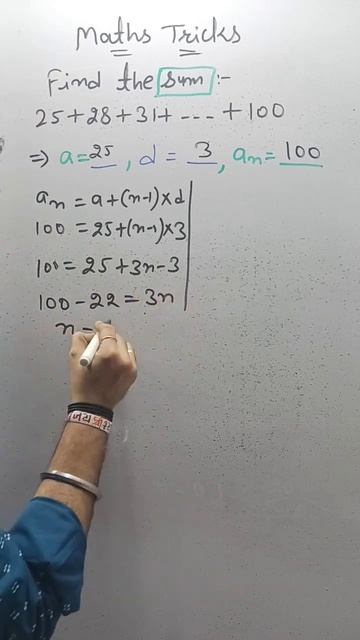 Maths Tricks
Find the sum :-
25+28+31+ --- +100
⇒ a=25, d = 3, an= 100
an = a+(n-1)xd
100 = 25+(n-1)x3
100 = 25+3n-3
100-22=3n
n=